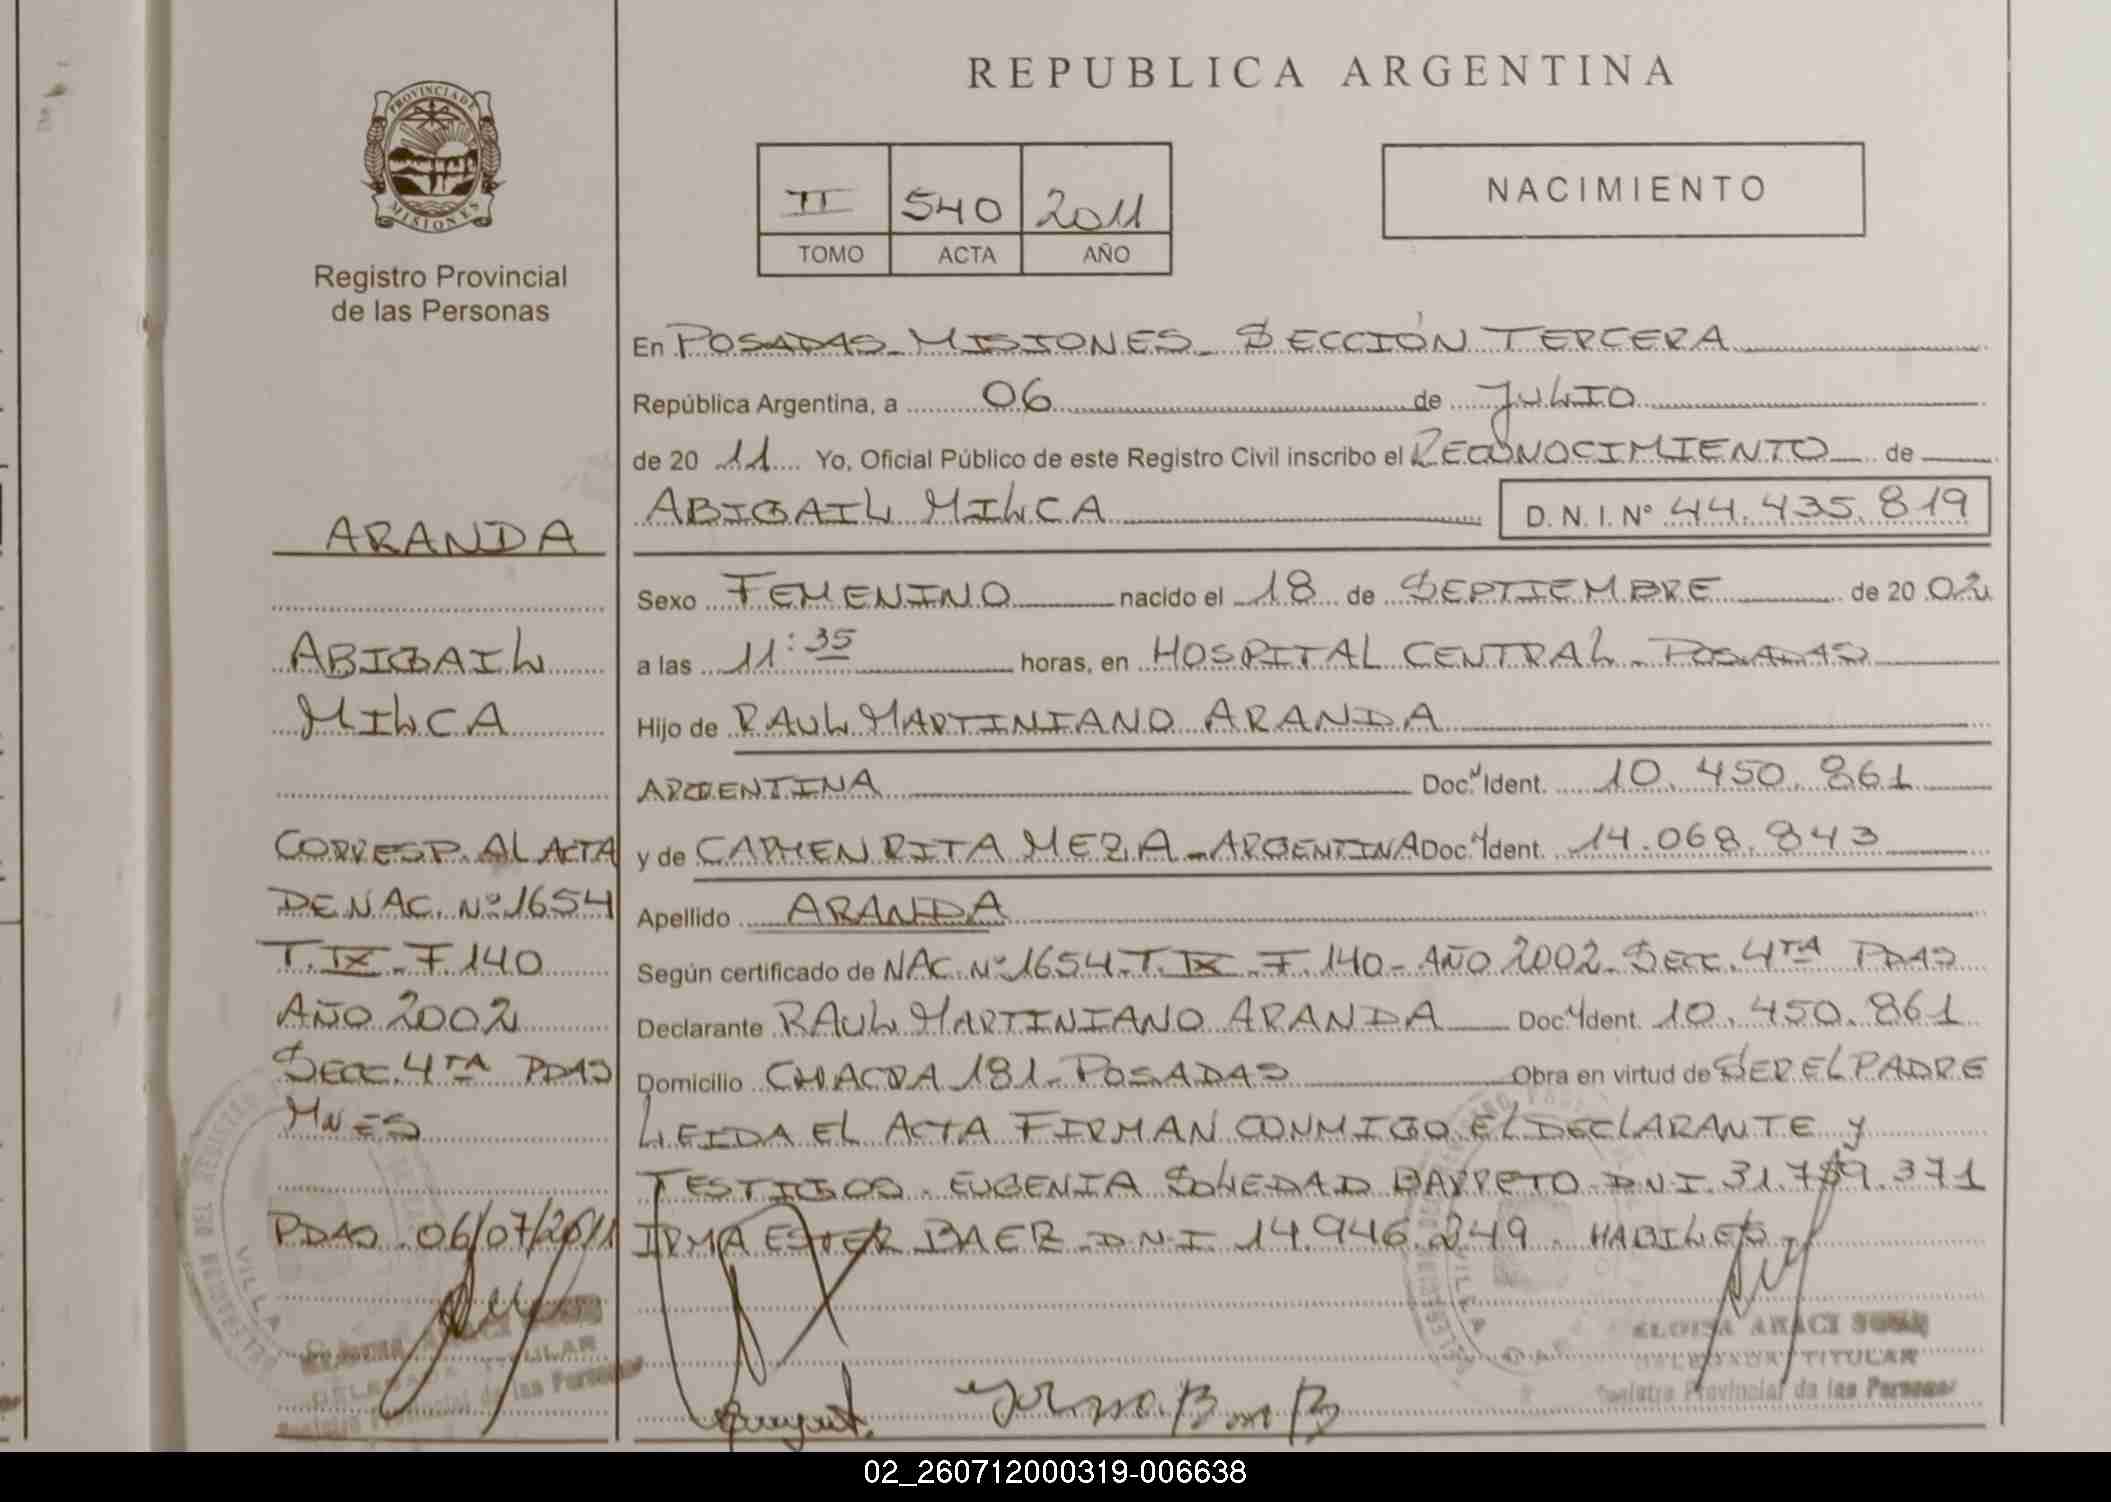 REPUBLICA ARGENTINA
PROVINCIA DE
MISIONES
Registro Provincial
de las Personas
II 540 2011
TOMO ACTA AÑO
NACIMIENTO
En POSADAS - MISIONES - SECCIÓN TERCERA
República Argentina, a 06 de JULIO
de 2011 Yo, Oficial Público de este Registro Civil inscribo el RECONOCIMIENTO de
ABIGAIL MILCA D. N. I. N° 44.435.819
Sexo FEMENINO nacido el 18 de SEPTIEMBRE de 2002
a las 11:35 horas, en HOSPITAL CENTRAL - POSADAS
Hijo de RAUL MARTINIANO ARANDA
ARGENTINA Doc. Ident. 10.450.861
y de CARMEN RITA MEZA - ARGENTINA Doc. Ident. 14.068.843
Apellido ARANDA
Según certificado de NAC. Nº 1654 - T. IX - F. 140 - AÑO 2002 - SECC. 4TA PDAS
Declarante RAUL MARTINIANO ARANDA Doc. Ident. 10.450.861
Domicilio CHACRA 181 - POSADAS Obra en virtud de SER EL PADRE
LEIDA EL ACTA FIRMAN CONMIGO EL DECLARANTE Y
TESTIGOS. EUGENIA SOLEDAD BARRETO D.N.I. 31.789.371
IRMA ESTER BAEZ D.N.I. 14.946.249. HABILES
ARANDA
ABIGAIL
MILCA
CORRESP. AL ACTA
DE NAC. Nº 1654
T. IX - F 140
AÑO 2002
SECC. 4TA PDAS
MNES
PDAS. 06/07/2011
TITULAR
Registro Provincial de las Personas
ELOISA ARACI
DELEGADA TITULAR
Registro Provincial de las Personas
02_260712000319-006638